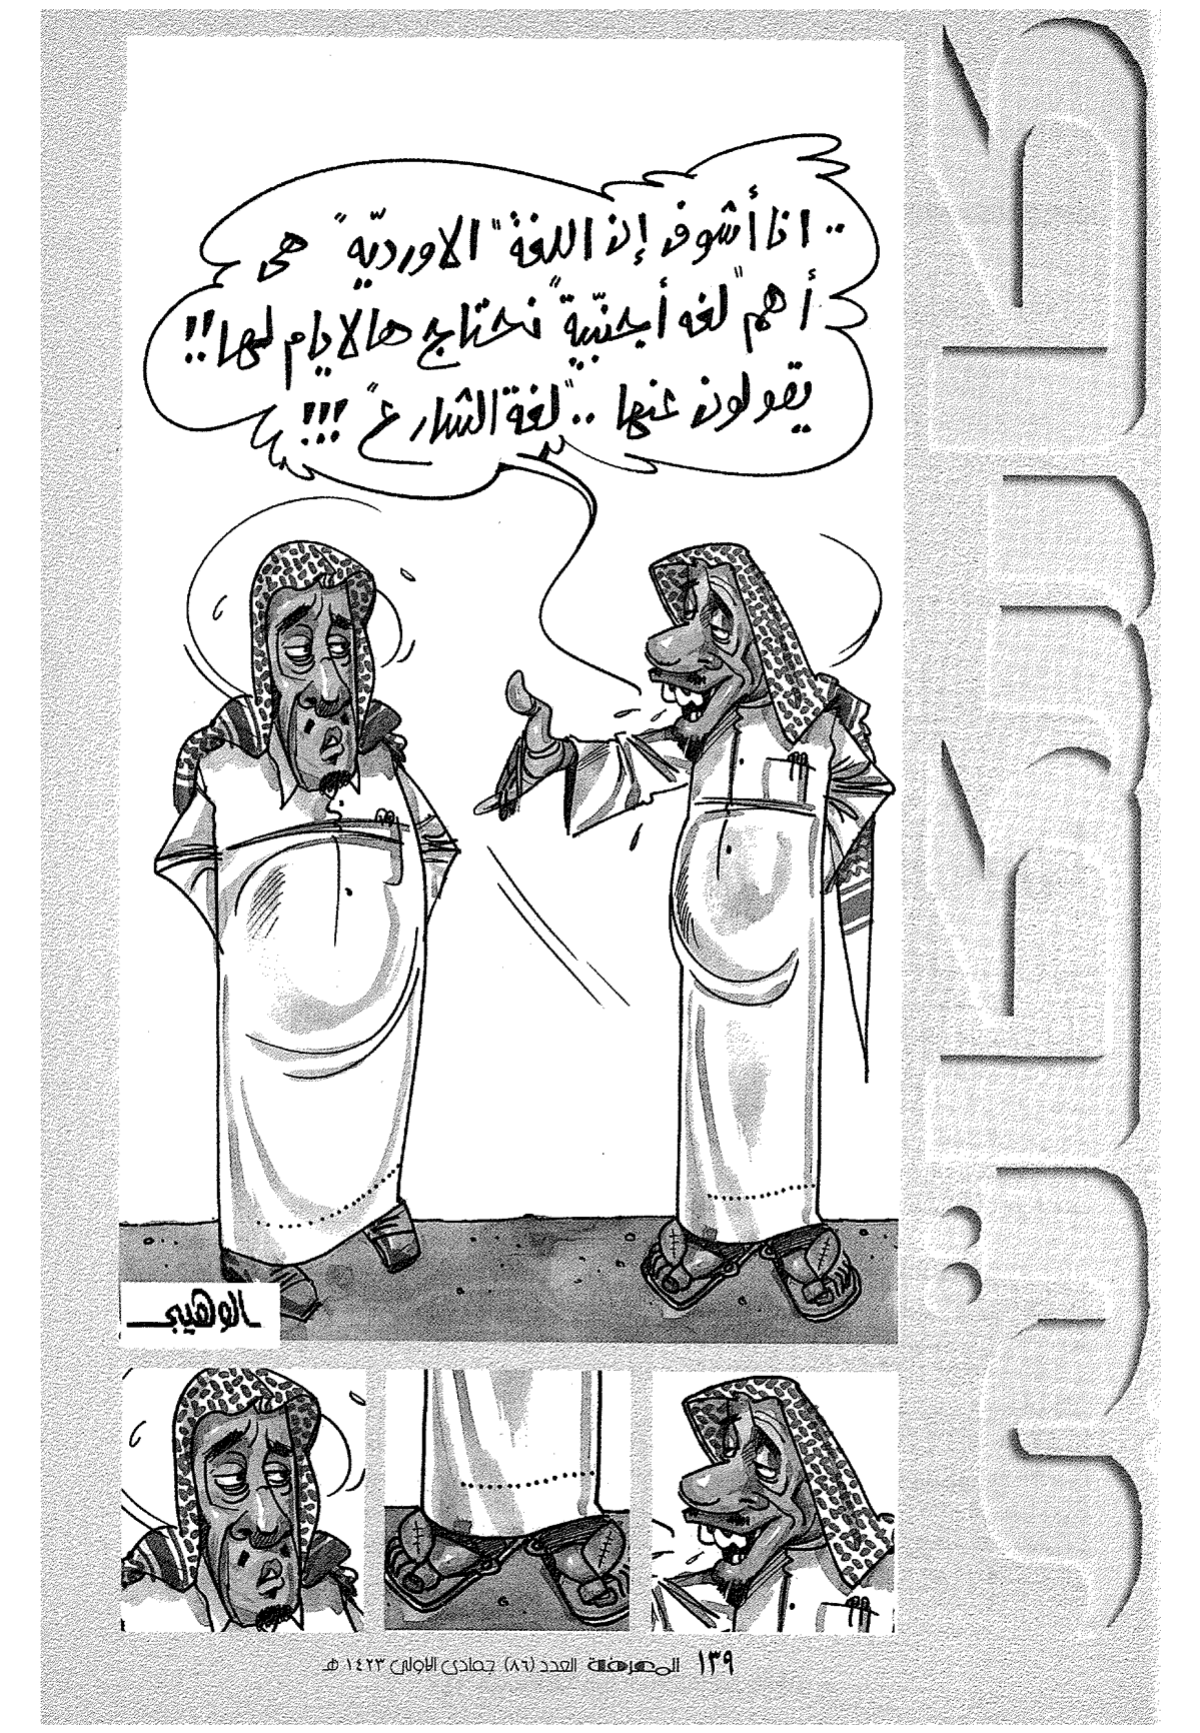 .. انا أشوف إن اللغة "الاورديّة" هى
أهم "لغه أجنبّية" نحتاج هالايام لها !!
يقولون عنها .. "لغة الشارع" !!!
الوهيبي
١٣٩ المعرفة العدد (٨٦) جمادى الأولى ١٤٢٣ هـ